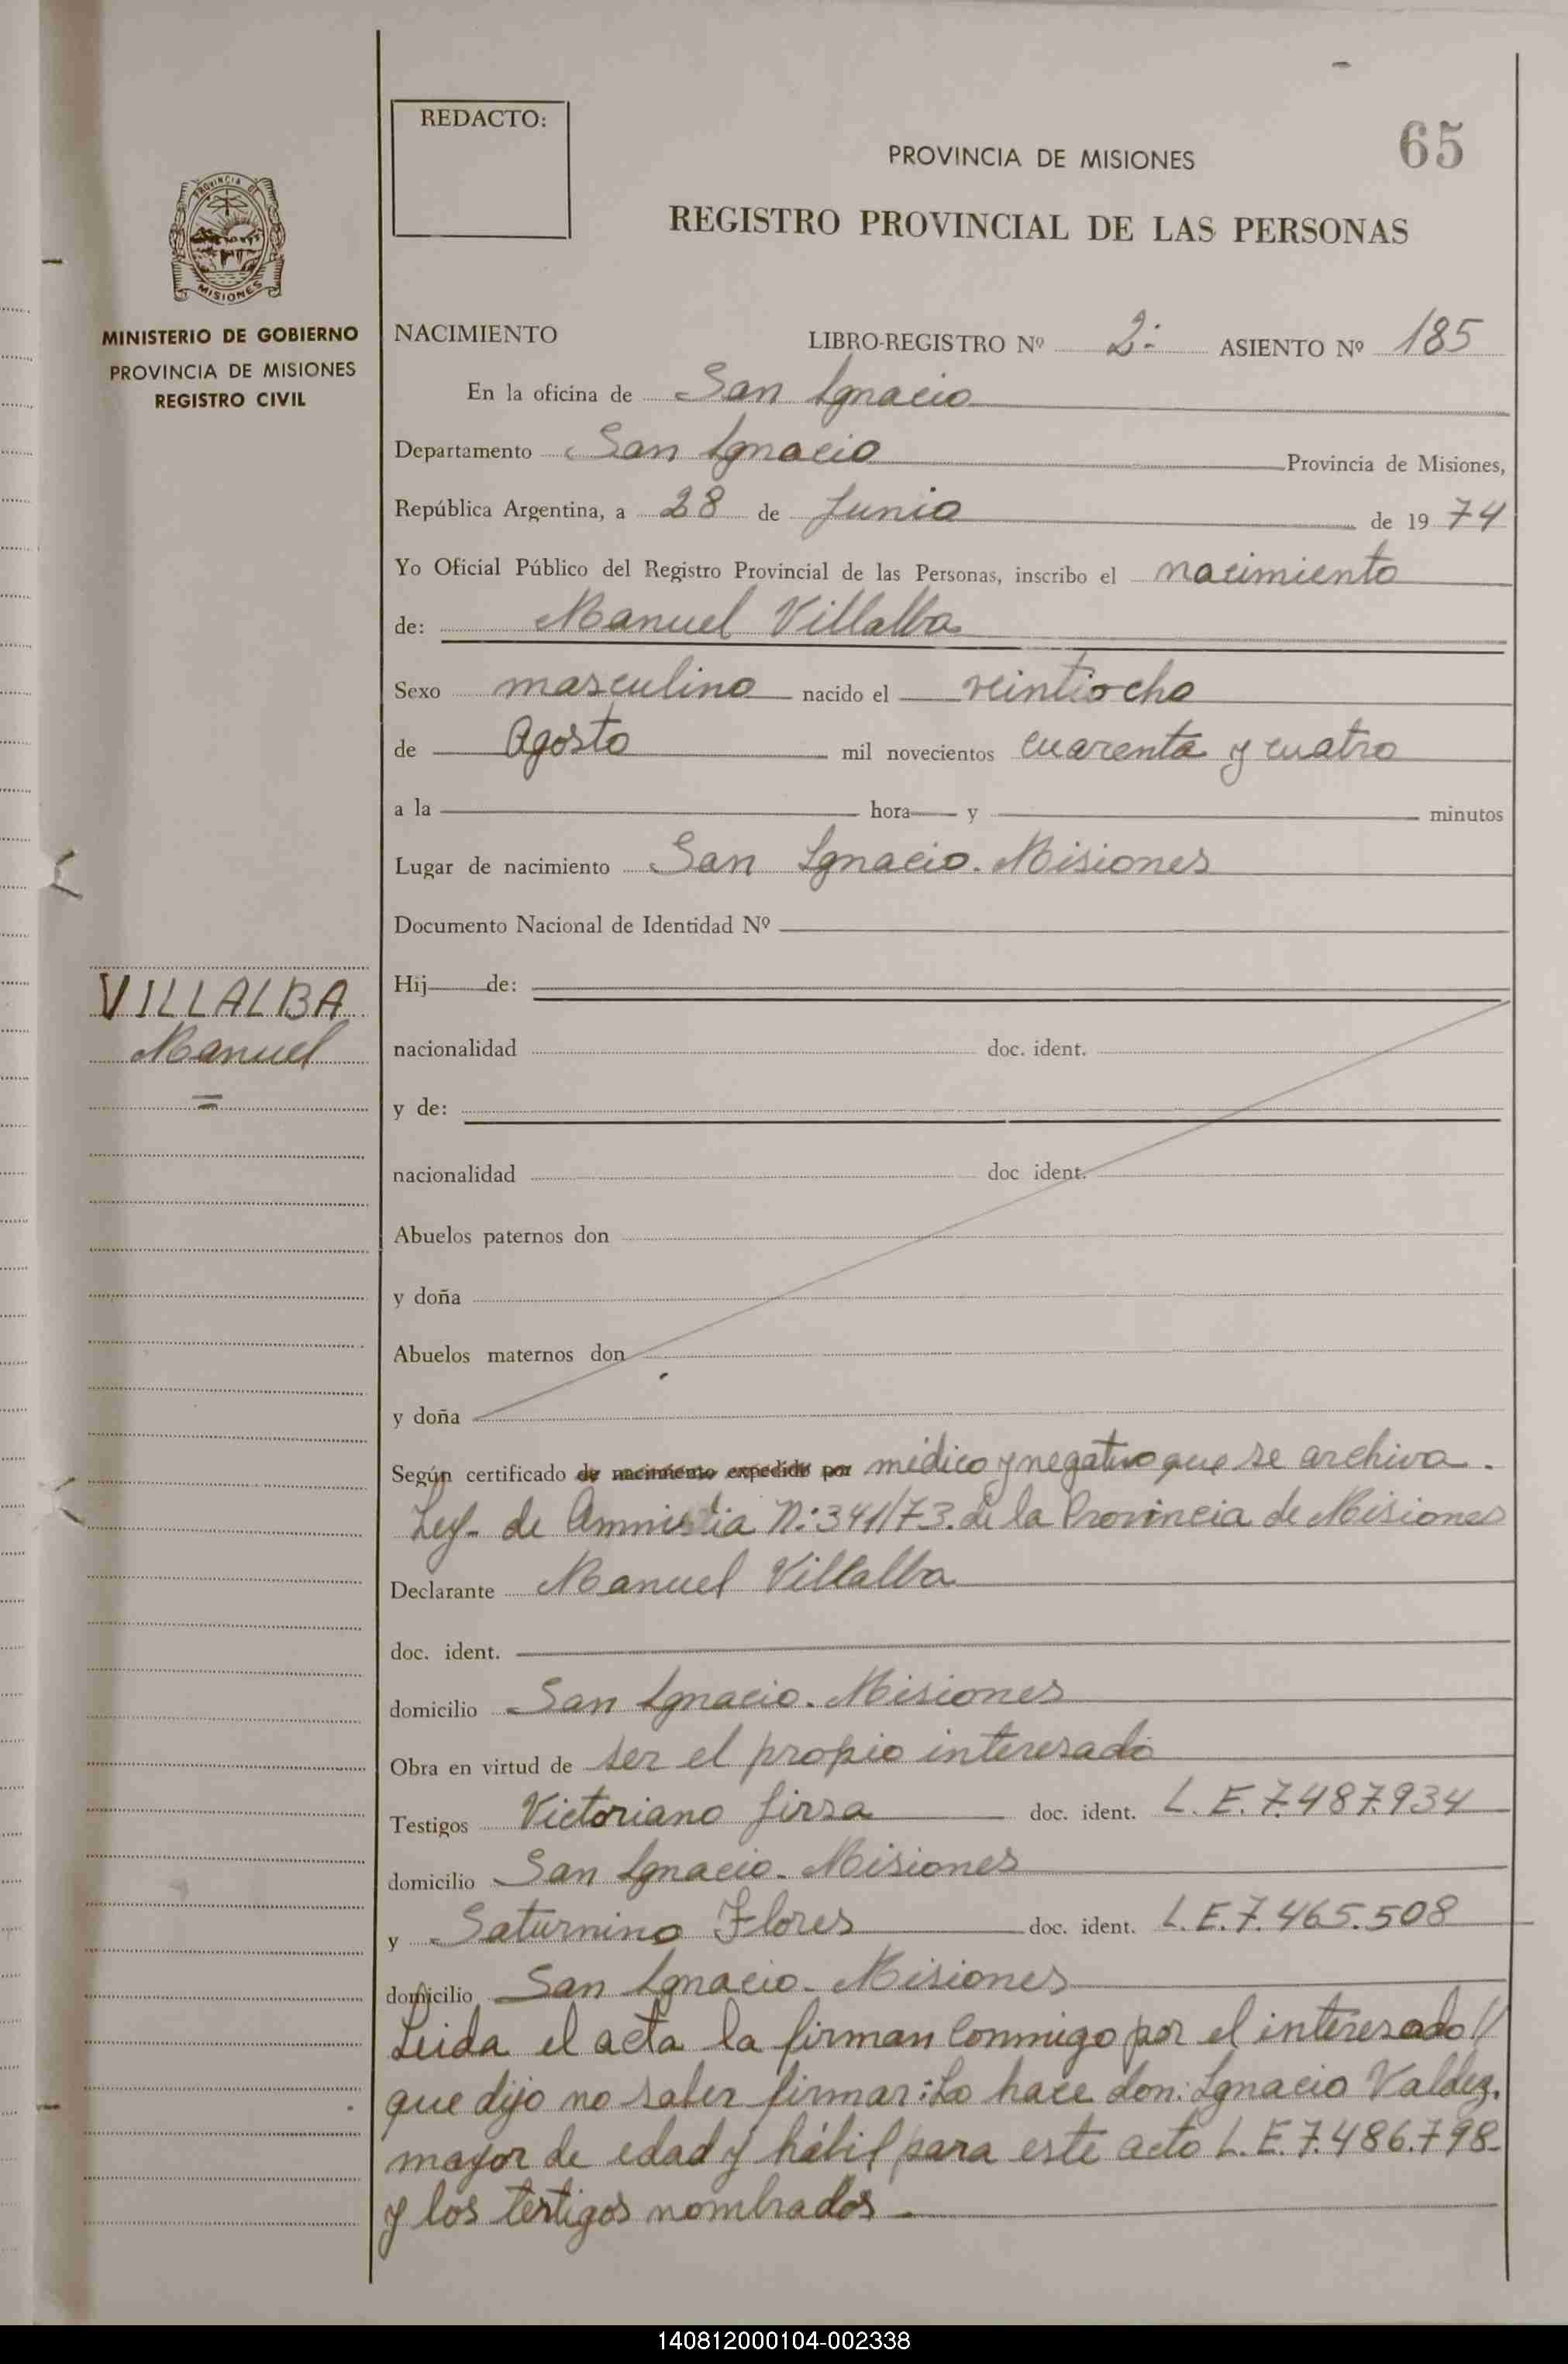 REDACTO:
65
PROVINCIA DE MISIONES
REGISTRO PROVINCIAL DE LAS PERSONAS
PROVINCIA DE
MISIONES
MINISTERIO DE GOBIERNO
PROVINCIA DE MISIONES
REGISTRO CIVIL
NACIMIENTO LIBRO-REGISTRO Nº 2: ASIENTO Nº 185
En la oficina de San Ignacio
Departamento San Ignacio Provincia de Misiones,
República Argentina, a 28 de Junio de 1974
Yo Oficial Público del Registro Provincial de las Personas, inscribo el nacimiento
de: Manuel Villalba
Sexo masculino nacido el veintiocho
de Agosto mil novecientos cuarenta y cuatro
a la hora y minutos
Lugar de nacimiento San Ignacio. Misiones
Documento Nacional de Identidad Nº
VILLALBA
Manuel
Hij de:
nacionalidad doc. ident.
y de:
nacionalidad doc ident.
Abuelos paternos don
y doña
Abuelos maternos don
y doña
Según certificado de nacimiento expedido por médico y negativo que se archiva.
Ley. de Amnistia N:341/73. de la Provincia de Misiones
Declarante Manuel Villalba
doc. ident.
domicilio San Ignacio. Misiones
Obra en virtud de ser el propio interesado
Testigos Victoriano doc. ident. L.E. 7.487.934
domicilio San Ignacio. Misiones
y Saturnino Flores doc. ident. L.E. 7.465.508
domicilio San Ignacio. Misiones
Leida el acta la firman conmigo por el interesado//
que dijo no saber firmar: Lo hace don: Ignacio Valdez.
mayor de edad y hábil para este acto L.E. 7.486.798-
y los testigos nombrados.
140812000104-002338